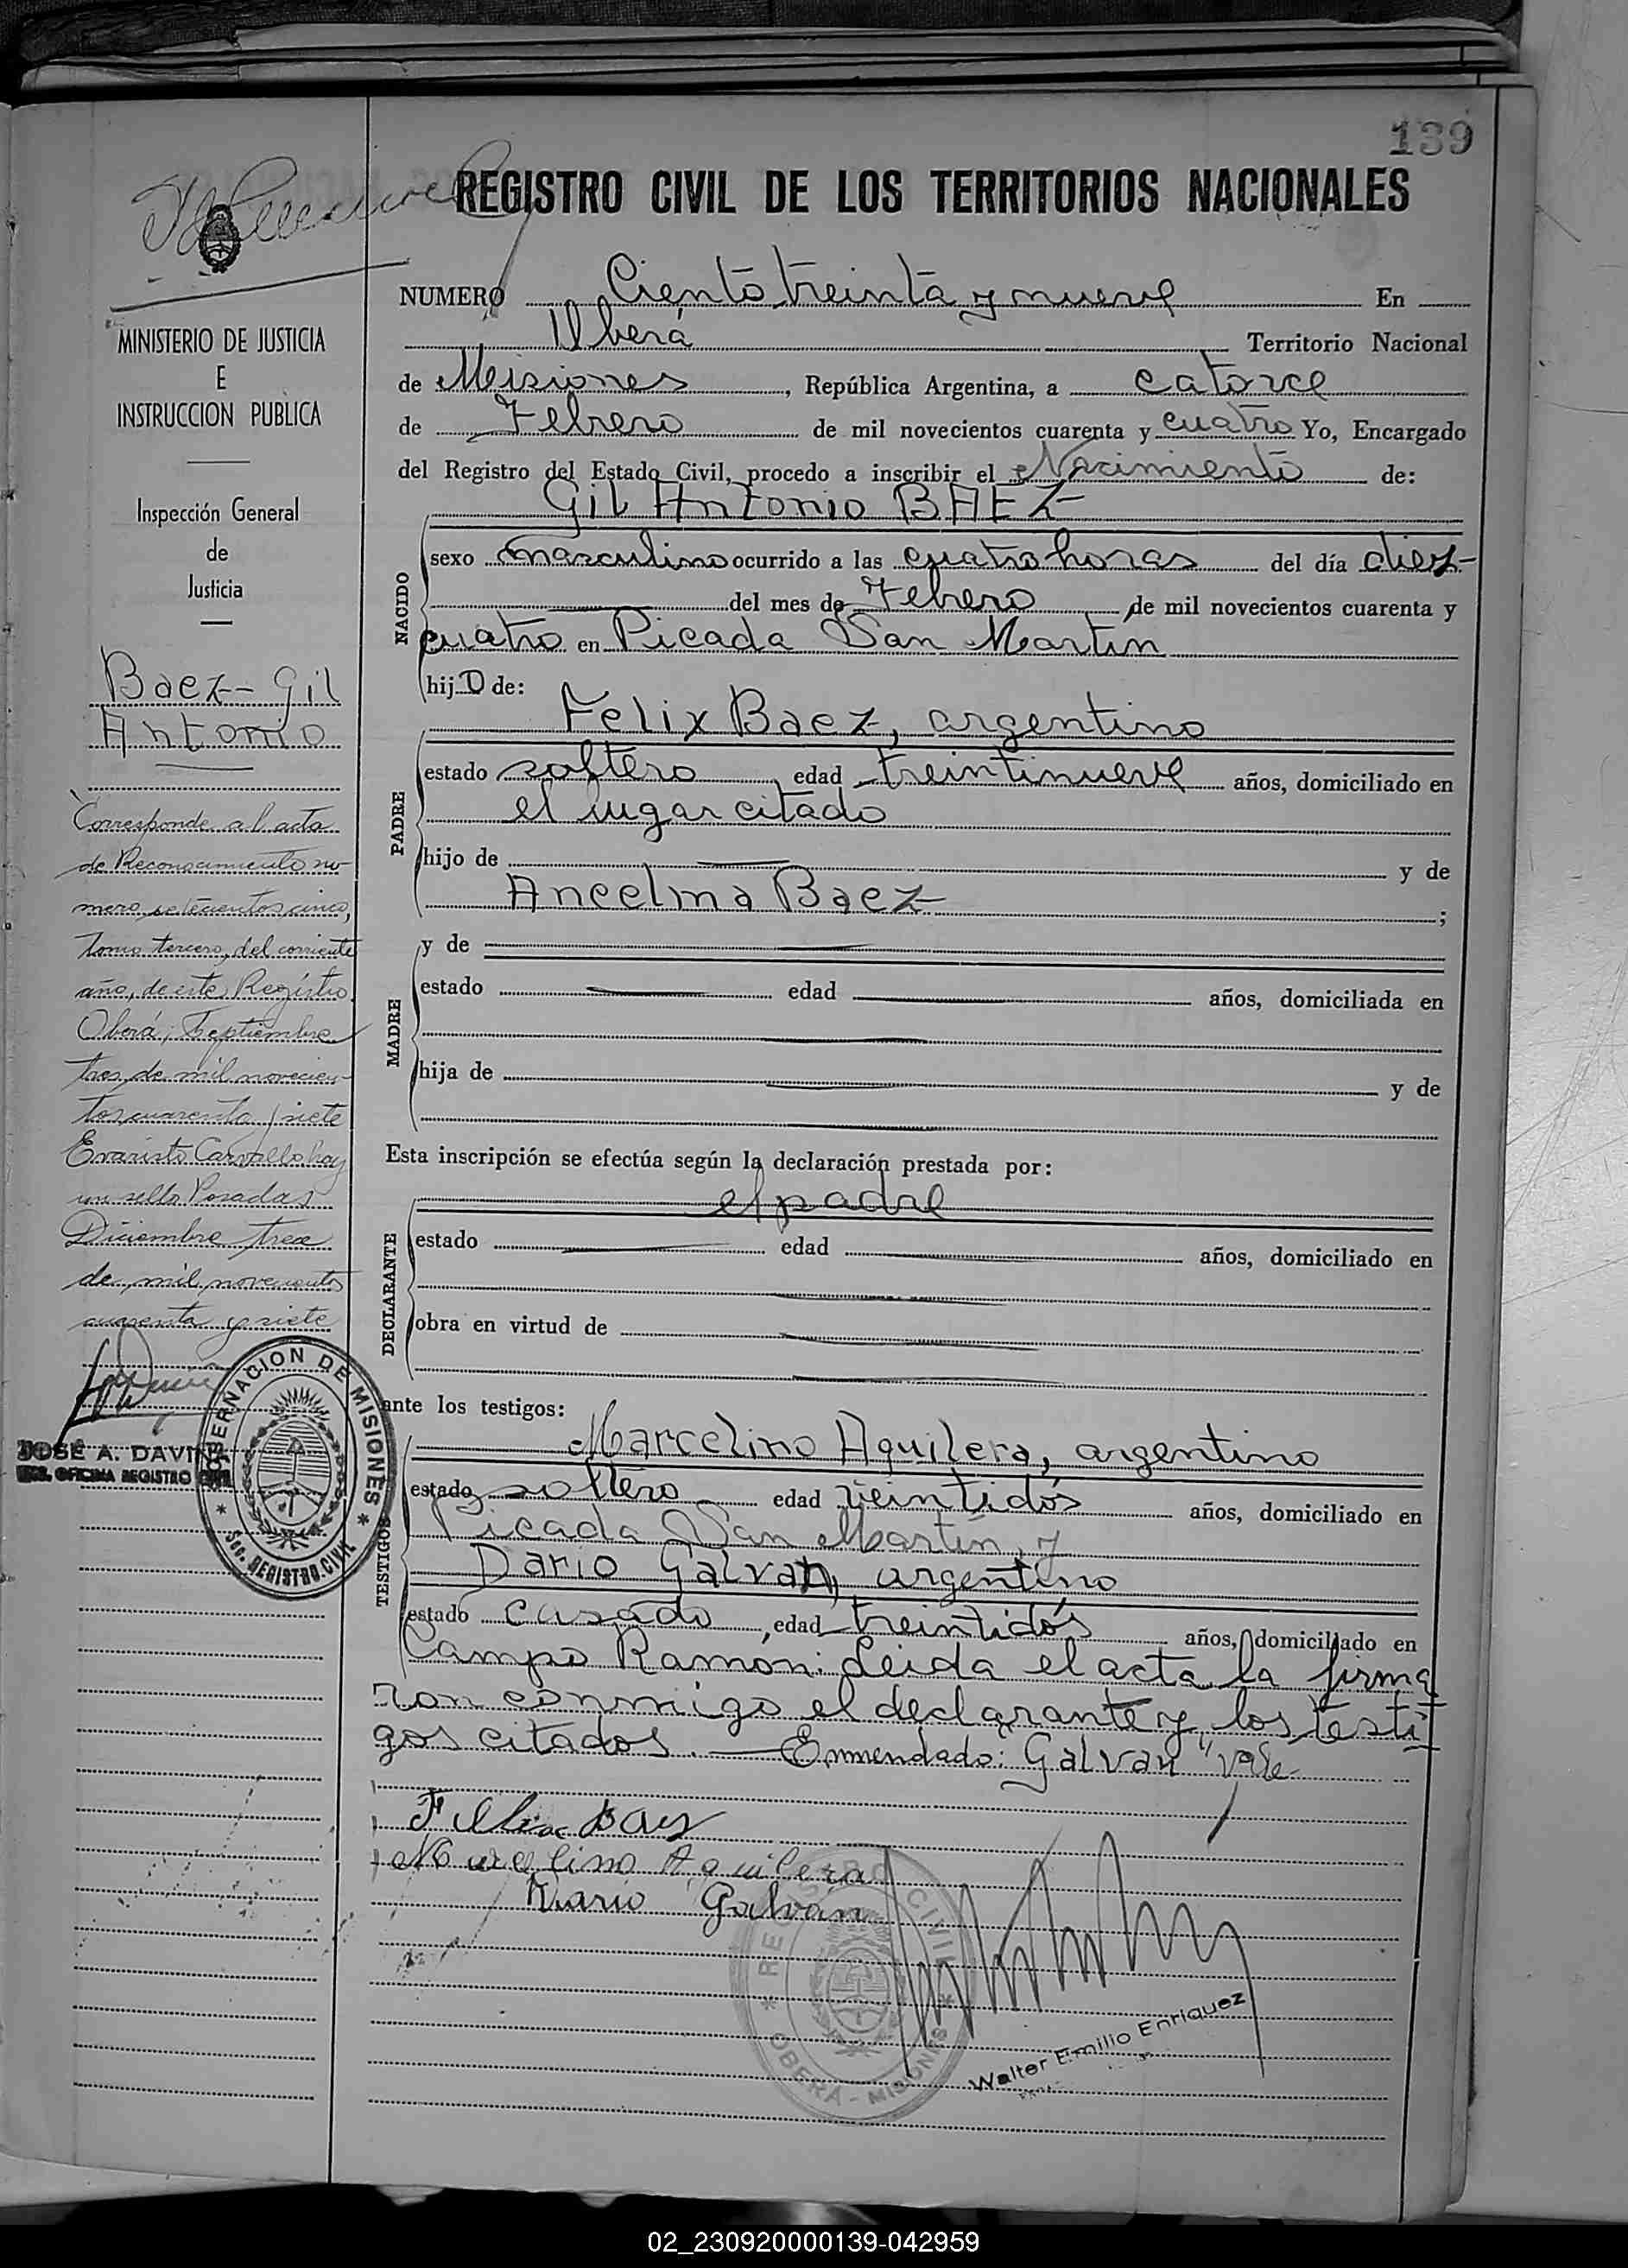 139
REGISTRO CIVIL DE LOS TERRITORIOS NACIONALES
MINISTERIO DE JUSTICIA
E
INSTRUCCION PUBLICA
Inspección General
de
Justicia
Baez - Gil
Antonio
Corresponde al acta
de Reconocimiento nú-
mero setecientos cinco,
tomo tercero, del corriente
año, de este Registro
Oberá, Septiembre
tres de mil novecien-
tos cuarenta y siete
Evaristo Carvallo hay
un sello Posadas
Diciembre trece
de mil novecientos
cuarenta y siete
GOBERNACION DE MISIONES
SEC. REGISTRO CIVIL
JOSÉ A. DAVIÑA
OFICINA REGISTRO CIVIL
NUMERO Ciento treinta y nueve En
Oberá Territorio Nacional
de Misiones, República Argentina, a catorce
de Febrero de mil novecientos cuarenta y cuatro Yo, Encargado
del Registro del Estado Civil, procedo a inscribir el Nacimiento de:
Gil Antonio BAEZ
NACIDO
sexo masculino ocurrido a las cuatro horas del día diez
del mes de Febrero de mil novecientos cuarenta y
cuatro en Picada San Martin
hijo de:
Felix Baez, argentino
PADRE
estado soltero, edad treintinueve años, domiciliado en
el lugar citado
hijo de y de
Ancelma Baez;
y de
MADRE
estado edad años, domiciliada en
hija de y de
Esta inscripción se efectúa según la declaración prestada por:
el padre
DECLARANTE
estado edad años, domiciliado en
obra en virtud de
ante los testigos:
Marcelino Aquilera, argentino
TESTIGOS
estado soltero edad veintidós años, domiciliado en
Picada San Martin, y
Dario Galvan, argentino
estado casado, edad treintidós años, domiciliado en
Campo Ramón: Leida el acta la firma
ron conmigo el declarante y los testi-
gos citados. — Enmendado: Galvan "vale
Felix Baez
Marcelino Aquilera
Dario Galvan
REGISTRO CIVIL
OBERÁ - MISIONES
Walter Emilio Enriquez
02_230920000139-042959